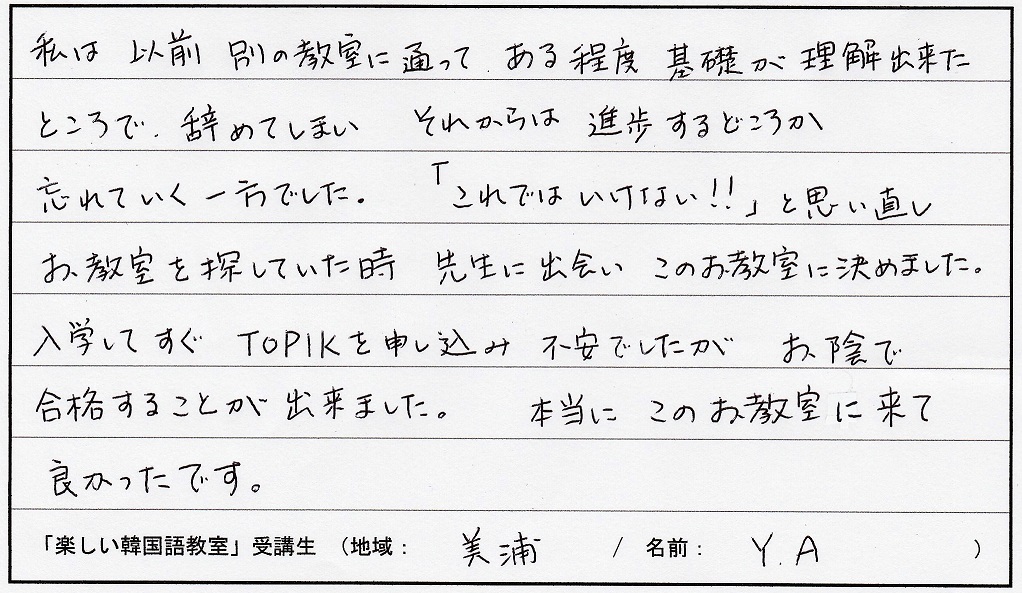 私は 以前 別の教室に通って ある程度 基礎が理解出来た
ところで、辞めてしまい それからは 進歩するどころか
忘れていく一方でした。 「これではいけない!!」と思い直し
お教室を探していた時 先生に出会い このお教室に決めました。
入学してすぐ TOPIKを申し込み 不安でしたが お陰で
合格することが出来ました。 本当に このお教室に来て
良かったです。
「楽しい韓国語教室」受講生 (地域: 美浦 / 名前: Y.A )